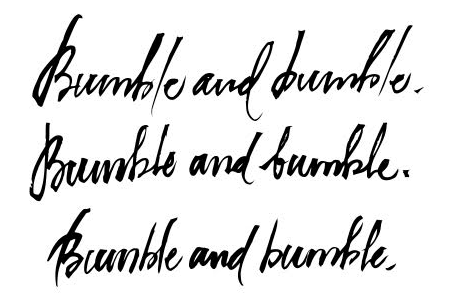 Bumble and bumble.
Bumble and bumble.
Bumble and bumble.